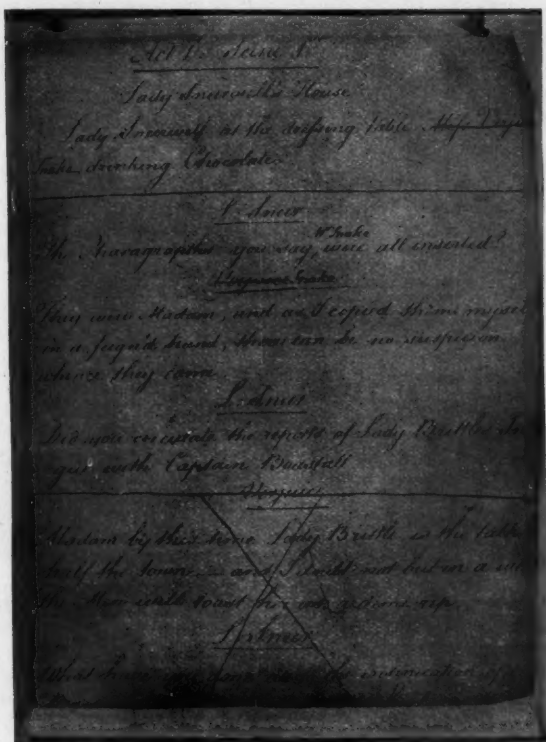 Act 1st Scene 1st
Lady Sneerwell's House
Lady Sneerwell at the dressing table Miss Verju
Snake drinking Chocolate.
L: Sneer
The Paragraphs you say, Mr Snake were all inserted?
Snake
They were Madam, and as I copied them myself
in a feign'd hand, there can be no suspicion
whence they came
L: Sneer
Did you circulate the report of Lady Brittle's In
gue with Captain Boastall
Verjuice
Madam by this time Lady Brittle is the talk
half the town and I doubt not but in a we
the Men will toast her as a demi-rep.
L: Sneer
What have you done the insinuation of